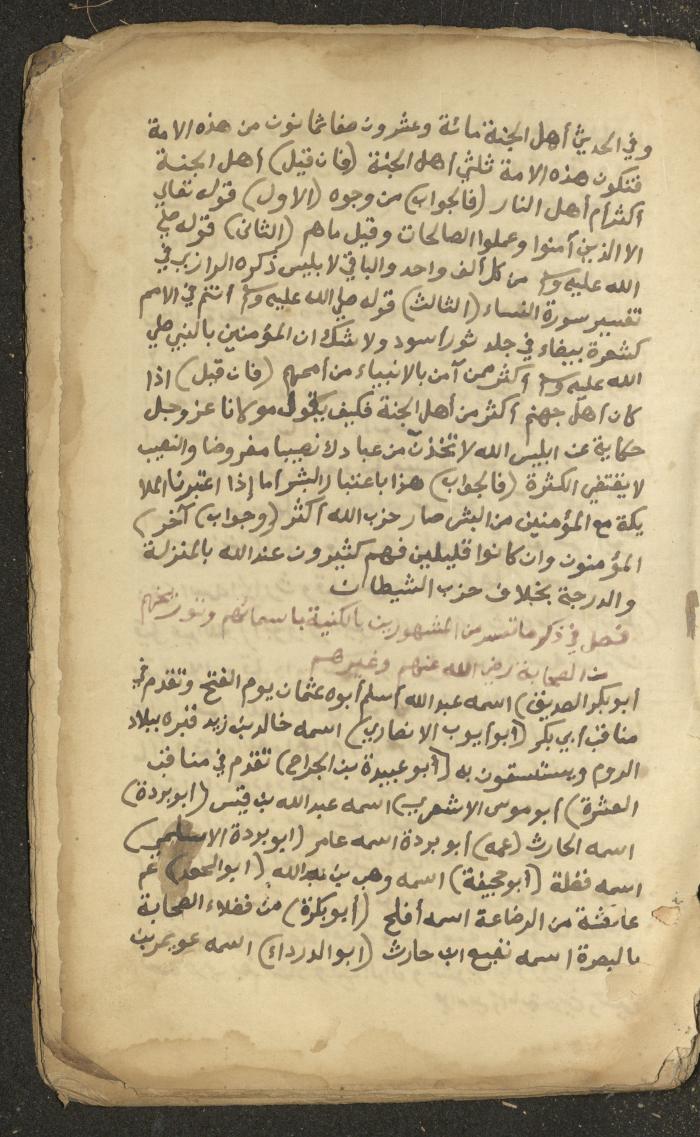 وفي الحديث أهل الجنة مائة وعشرون صفا ثمانون من هذه الامة
فتكون هذه الامة ثلثي أهل الجنة (فان قيل) أهل الجنة
أكثر أم أهل النار (فالجواب) من وجوه (الاول) قوله تعالى
الا الذين آمنوا وعملوا الصالحات وقيل ماهم (الثاني) قوله صلي
الله عليه وسلم من كل ألف واحد والباقي لابليس ذكره الرازي في
تفسير سورة النساء (الثالث) قوله صلي الله عليه وسلم أنتم في الامم
كشعرة بيضاء في جلد ثور أسود ولا شك ان المؤمنين بالنبي صلي
الله عليه وسلم أكثر ممن آمن بالانبياء من أممهم (فان قيل) اذا
كان أهل جهنم أكثر من أهل الجنة فكيف يقول مولانا عز وجل
حكاية عن ابليس الله لاتخذن من عبادك نصيبا مفروضا والنصيب
لا يقتضي الكثرة (فالجواب) هذا باعتبار البشر أما إذا اعتبرنا الملا
يكة مع المؤمنين من البشر صار حزب الله أكثر (وجواب آخر)
المؤمنون وان كانوا قليلين فهم كثيرون عند الله بالمنزلة
والدرجة بخلاف حزب الشيطان
فصل في ذكر ما تيسر من المشهورين بالكنية باسمائهم وتواريخهم
من الصحابة رضي الله عنهم وغيرهم
أبوبكر الصديق) اسمه عبد الله أسلم أبوه عثمان يوم الفتح وتقدم في
مناقب أبي بكر (أبو أيوب الانصاري) اسمه خالد بن زيد قبره ببلاد
الروم ويستسقون به (أبو عبيدة بن الجراح) تقدم في مناقب
العشرة) أبو موسى الاشعري) اسمه عبد الله بن قيس (ابو بردة)
اسمه الحارث (عمه) أبو بردة اسمه عامر (ابو بردة الاسلمي)
اسمه فضلة (أبو جحيفة) اسمه وهب بن عبد الله (ابو الجعد) عم
عائشة من الرضاعة اسمه أفلح (أبو بكرة) من فضلاء الصحابة
بالبصرة اسمه نفيع ابن حارث (ابو الدرداء) اسمه عويمر بن